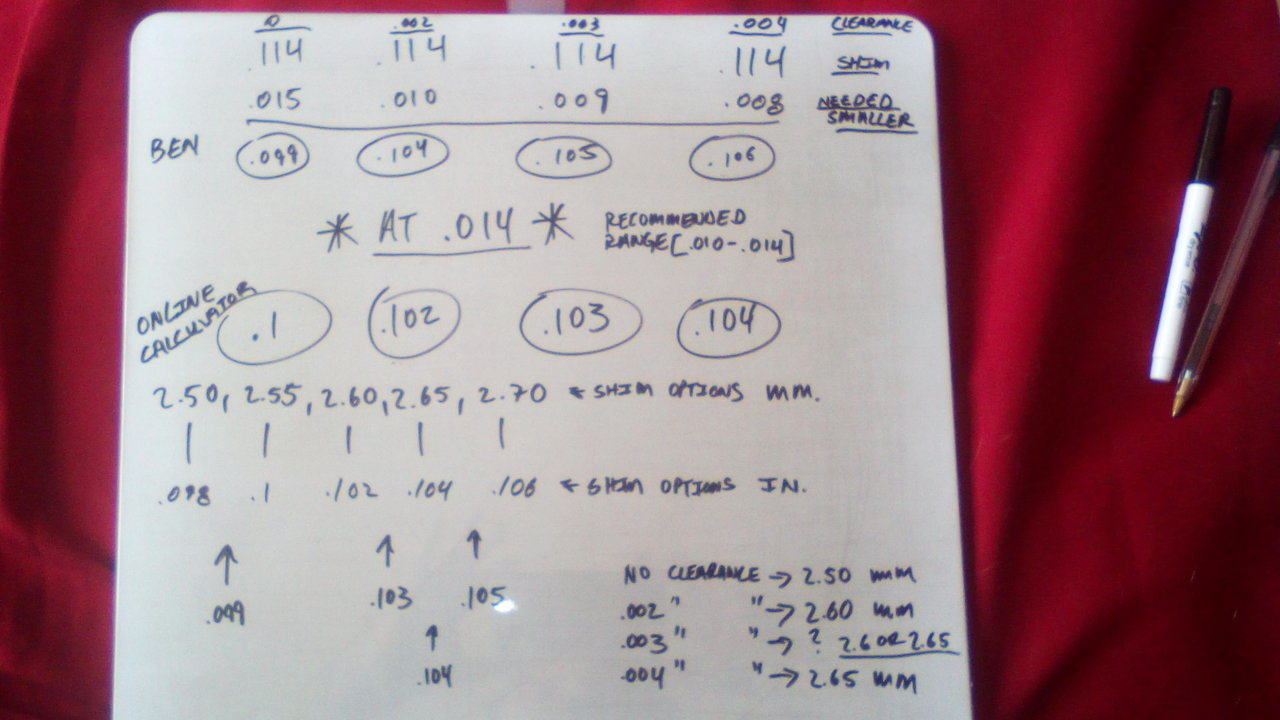 0 .002 .003 .004 CLEARANCE
.114 .114 .114 .114 SHIM
.015 .010 .009 .008 NEEDED SMALLER
BEN .099 .104 .105 .106
* AT .014 * RECOMMENDED
RANGE [.010-.014]
ONLINE
CALCULATOR .1 .102 .103 .104
2.50, 2.55, 2.60, 2.65, 2.70 ← SHIM OPTIONS MM.
| | | | |
.098 .1 .102 .104 .106 ← SHIM OPTIONS IN.
↑ ↑ ↑
.099 .103 .105
↑
.104
NO CLEARANCE → 2.50 mm
.002 " " → 2.60 mm
.003 " " → ? 2.6 OR 2.65
.004 " " → 2.65 mm